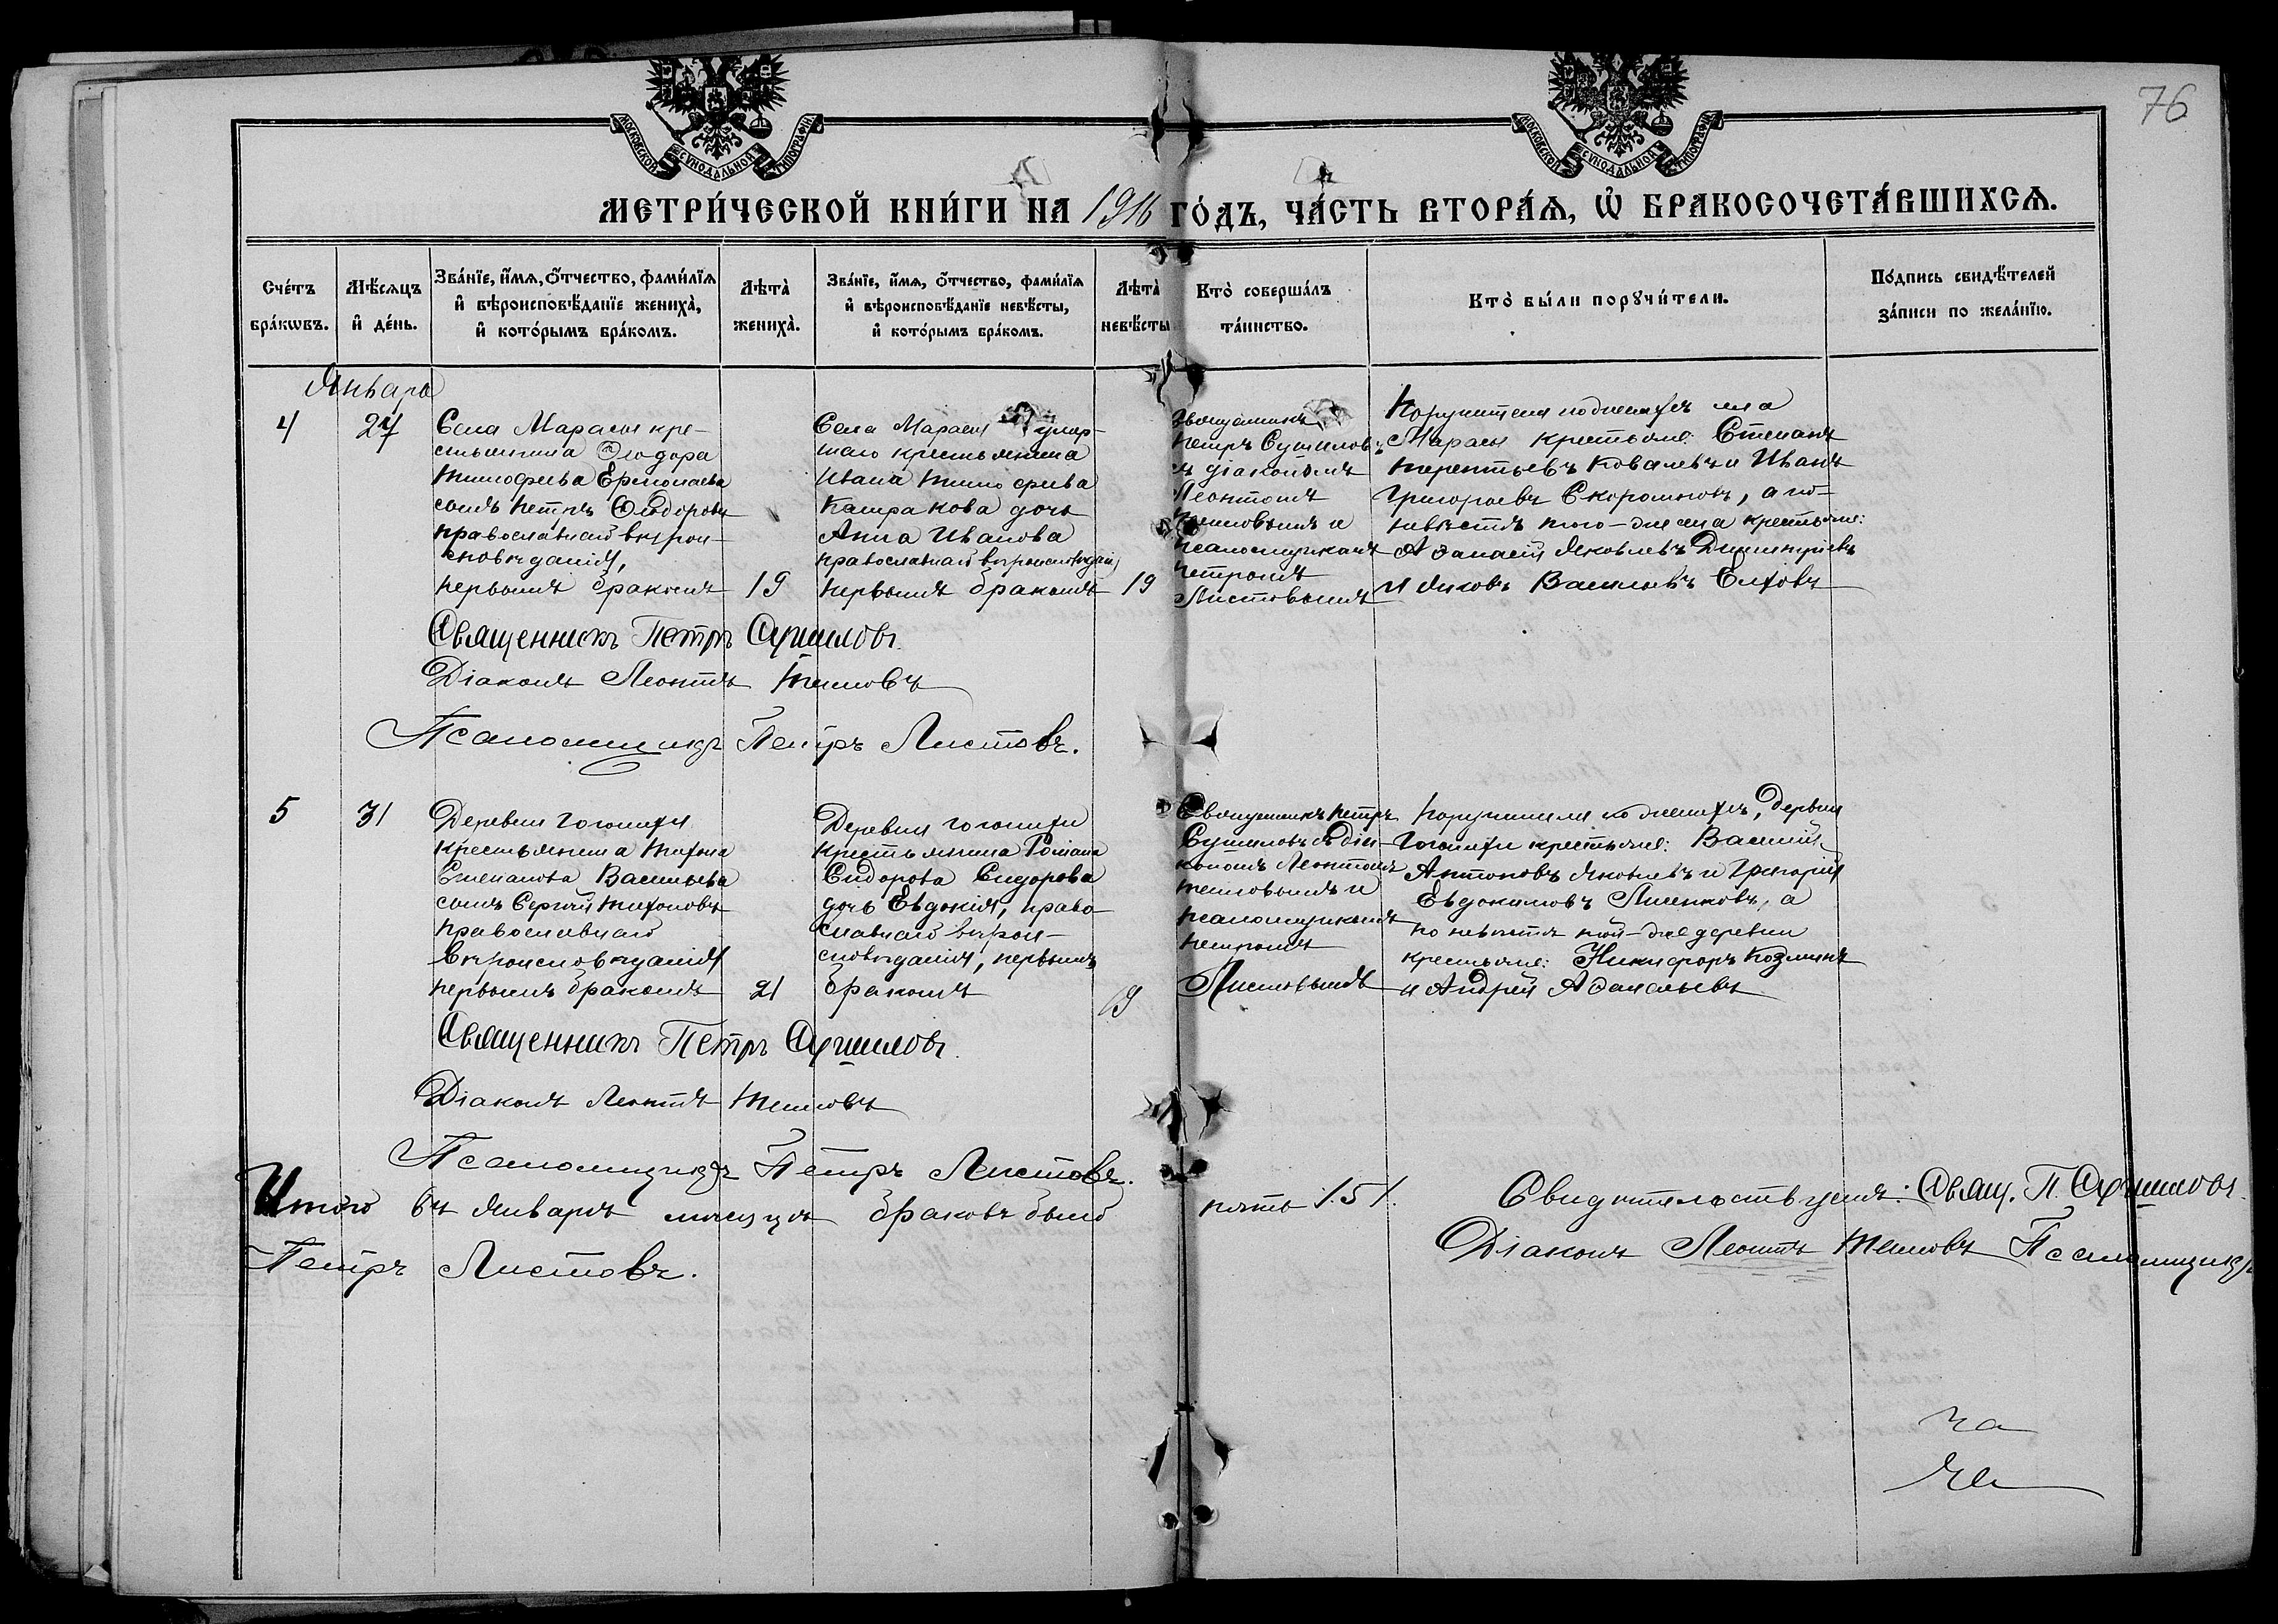 76
МОСКОВСКОЙ СУНОДАЛЬНОЙ ТИПОГРАФІИ
МОСКОВСКОЙ СУНОДАЛЬНОЙ ТИПОГРАФІИ
МЕТРИ́ЧЕСКОЙ КНИ́ГИ НА 1916 ГО́ДЪ, ЧА́СТЬ ВТОРА́Ѧ, Ѽ БРАКОСОЧЕТА́ВШИХСѦ.
Сче́тъ
бра́кѡвъ.
Мѣ́сѧцъ
и҆ де́нь.
Зва́нїе, и҆́мѧ, ѻ҆́тчество, фами́лїѧ
и҆ вѣроисповѣ́данїе жениха̀,
и҆ кото́рымъ бра́комъ.
Лѣта̀
жениха̀.
Зва́нїе, и҆́мѧ, ѻ҆́тчество, фами́лїѧ
и҆ вѣроисповѣ́данїе невѣ́сты,
и҆ кото́рымъ бра́комъ.
Лѣта̀
невѣ́сты
Кто̀ соверша́лъ
та́инство.
Кто̀ бы́ли порꙋчи́тели.
По́дпись свидѣ́телей
за́писи по жела́нїю.
Январь
4
27
Села Марасы кре-
стьянина Ѳеодора
Тимофеева Ермолаева
сынъ Петръ Ѳеодоровъ
православнаго вѣрои-
сповѣданія,
первымъ бракомъ
19
Села Марасы умер-
шаго крестьянина
Ивана Тимофеева
дочь
Анна Иванова
православнаго вѣроисповѣданія
первымъ бракомъ
19
Священникъ
Петръ Сушиловъ
съ діакономъ
Леонтомъ
Темновымъ и
псаломщикомъ
Петромъ
Листовымъ
Поручители по женихѣ села
Марасы крестьяне: Степанъ
Терентьевъ Ковалевъ и Иванъ
Григорьевъ, а по
невѣстѣ того-же села крестьяне:
Аѳанасій Яковлевъ
и Яковъ Васильевъ
Священникъ Петръ Сушиловъ.
Діаконъ Леонтъ Темновъ
Псаломщикъ Петръ Листовъ.
5
31
Деревни Гоголихи
крестьянина Тихона
Степанова Васильева
сынъ Сергѣй Тихоновъ
православнаго
вѣроисповѣданія
первымъ бракомъ
21
Деревни Гоголихи
крестьянина Романа
Сидорова Сидорова
дочь Евдокія, право-
славнаго вѣрои-
сповѣданія, первымъ
бракомъ
19
Священникъ Петръ
Сушиловъ съ діа-
кономъ Леонтомъ
Темновымъ и
псаломщикомъ
Петромъ
Листовымъ
Поручители по женихѣ, деревни
Гоголихи крестьяне: Василій
Антоновъ Яковлевъ и Григорій
Евдокимовъ, а
по невѣстѣ той-же деревни
крестьяне: Никифоръ Козминъ
и Андрей Аѳанасьевъ
Священникъ Петръ Сушиловъ.
Діаконъ Леонтъ Темновъ
Псаломщикъ Петръ Листовъ.
Итого въ январѣ мѣсяцѣ браковъ было пять /5/. Свидѣтельствуемъ: Свящ. П. Сушиловъ.
Діаконъ Леонтъ Темновъ Псаломщикъ
Петръ Листовъ.